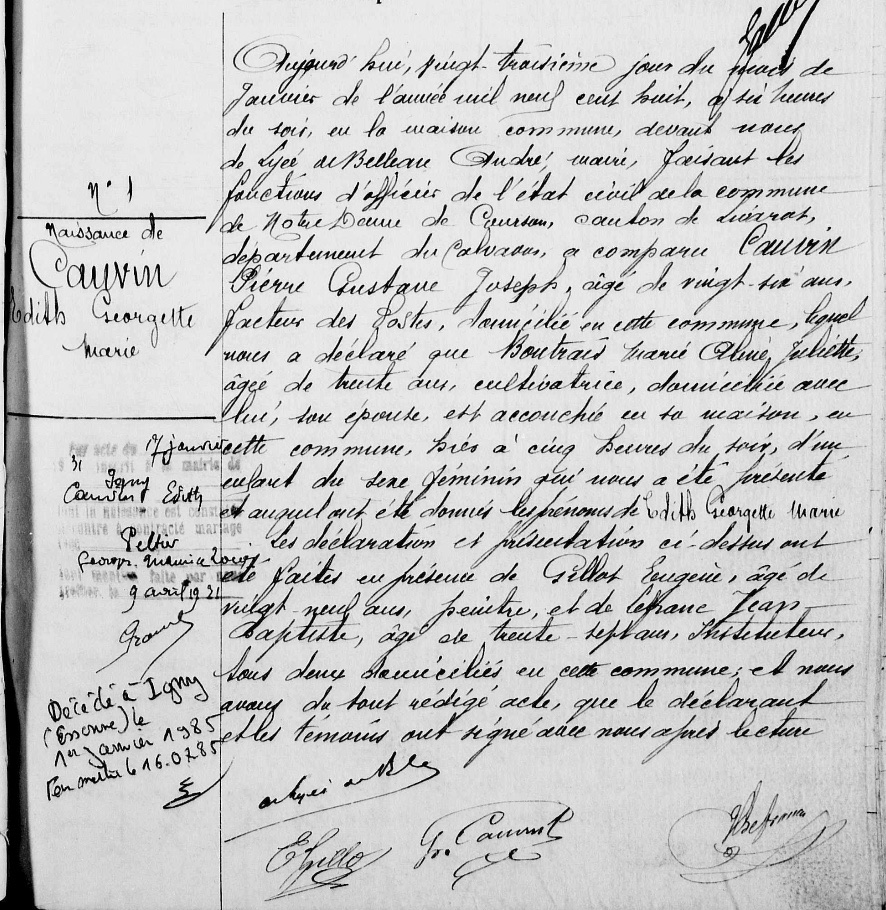 N° 1
Naissance de
Cauvin
Edith Georgette
Marie
Aujourd'hui, vingt-troisième jour du mois de
Janvier de l'année mil neuf cent huit, à six heures
du soir, en la maison commune, devant nous
de Lyée de Belleau André, maire, faisant les
fonctions d'officier de l'état civil de la commune
de Notre Dame de Courson, canton de Livarot,
département du Calvados, a comparu Cauvin
Pierre Gustave Joseph, âgé de vingt-six ans,
facteur des Postes, domicilié en cette commune, lequel
nous a déclaré que Boutrais Marie Aline Juliette,
âgée de trente ans, cultivatrice, domiciliée avec
lui, son épouse, est accouchée en sa maison, en
cette commune, hier à cinq heures du soir, d'un
enfant du sexe féminin qui nous a été présenté
et auquel ont été donnés les prénoms de Edith Georgette Marie
Les déclaration et présentation ci-dessus ont
été faites en présence de Gillot Eugène, âgé de
vingt-neuf ans, peintre, et de Lefranc Jean
Baptiste, âgé de trente-sept ans, Instituteur,
tous deux domiciliés en cette commune; et nous
avons du tout rédigé acte, que le déclarant
et les témoins ont signé avec nous après lecture
Par acte du 7 janvier
31 inscrit à la mairie de
Igny
Cauvin Edith
dont la naissance est
contre a contracté mariage
Peltier
Georges Maurice Louis
mention faite par
9 avril 1931
Décédée à Igny
(Essonne) le
1er janvier 1985
16.01.85
de Lyée de Belleau
E Gillot
Cauvin